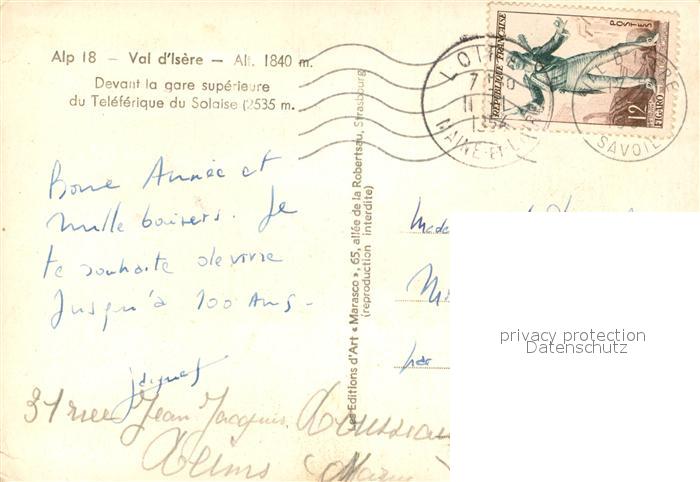 Alp 18 – Val d'Isère – Alt. 1840 m.
Devant la gare supérieure
du Teléférique du Solaise (2535 m.
Bonne Année et
mille baisers. Je
te souhaite de vivre
jusqu'à 100 ans -
Jacques
31 rue Jean Jacques Rousseau
Reims (Marne
Les Editions d'Art « Marasco », 65, allée de la Robertsau, Strasbourg
(reproduction interdite)
RÉPUBLIQUE FRANÇAISE
POSTES
12
FIGARO
MAINE-ET-LOIRE
SAVOIE
par
privacy protection
Datenschutz